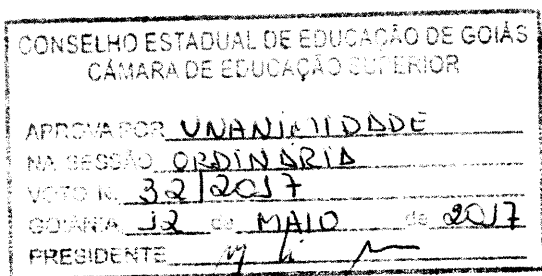 CONSELHO ESTADUAL DE EDUCAÇÃO DE GOIÁS
CÂMARA DE EDUCAÇÃO SUPERIOR
APROVA POR UNANIMIDADE
NA SESSÃO ORDINÁRIA
VOTO N. 32/2017
GOIÂNIA 12 de MAIO de 2017
PRESIDENTE